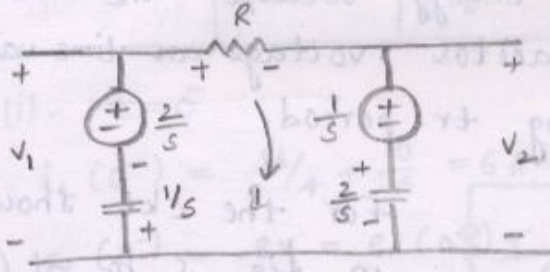 R
+ + - +
+ - 2/s 1/s + -
V1 - + V2
1/s I 2/s
- + - -